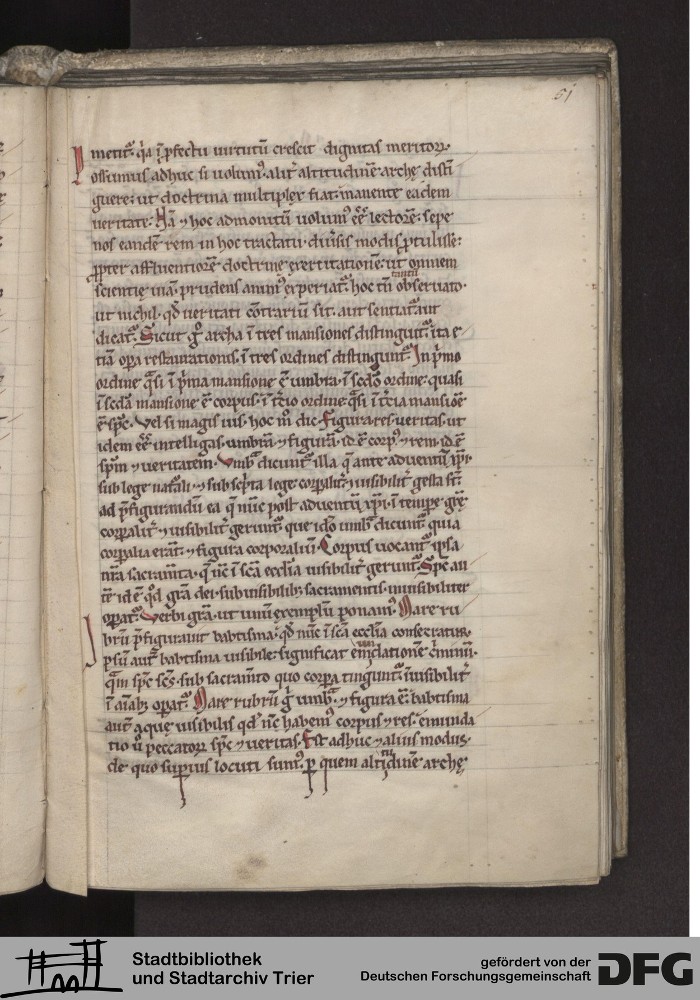 51
metit᷑. q̇a ī ꝓfectu uirtutū crescit dignitas meritoꝝ.
Possumus adhuc si uolum᷒. alit᷑ altitudinē archę disti
guere: ut doctrina multiplex fiat: manente eadem
ueritate. Nā ⁊ hoc admonitū uolum᷒ eē lectorē: sepe
nos eandē rem in hoc tractatu diuīsis modis ꝓtulisse:
ꝓpter affluentiorē doctrinę exercitationē: ut omnem
scientię uiā prudens anim᷒ experiat᷑. hoc tm̄ tantū obseruato.
ut nichil. qđ ueritati cōtrariū sit. aut sentiat᷑. aut
dicat᷑. Sicut g̊ archa ī tres mansiones distinguit᷑. ita e
tiā oꝑa restaurationis. ī tres ordines distingunt᷑. In p̄mo
ordine q̄si ī p̄ma mansione ē umbra. ī scdo ordine. quasi
ī scda mansione ē corpus. ī t̄cio ordine. q̄si ī t̄cia mansiōe
ē spc̄. Vel si magis uis. hoc m̊ dic. Figura. res. ueritas. ut
idem eē intelligas. umbrā ⁊ figurā. id ē corp᷒ ⁊ rem. id ē
spm̄ ⁊ ueritatem. Vmb̄ dicunt᷑ illa q̄ ante aduentū xp̄i.
sub lege nat̄ali. ⁊ sub scripta lege corꝑalit᷑ ⁊ uisibilit᷑ gesta st̄.
ad p̄figurandū ea q̄ nūc post aduentū xp̄i. ī temp̄e grē
corꝑalit᷑ ⁊ uisibilit᷑ gerunt᷑. que ido umb̄ dicunt᷑. quia
corꝑalia erāt. ⁊ figura corporaliū. Corpus uocant᷑ ipsa
nr̄a sacram̄ta. q̄ nc̄ ī scā eccl̄ia uisibilit᷑ gerunt᷑. Spc̄ au
tē id ē qđ grā dei sub uisibilib; sacramentis. inuisibiliter
oꝑat᷑. Verbi grā. ut unū exemplū ponam᷒. Mare ru
brū p̄figurauit babtisma. qđ nūc ī scā ecclia consecratur.
ipsū aut̄ babtisma uisibile. significat emūdationē c̄minū.
quā spc̄ scs̄. sub sacram̄to quo corꝑa tingunt᷑. īuisibilit᷑
ī aīab; oꝑat᷑. Mare rubrū g̊ umb̄. ⁊ figura ē. babtisma
aut̄ aque uisibilis qđ nc̄ habem᷒ corpus ⁊ res. emunda
tio ů peccatoꝝ spc̄ ⁊ ueritas. Est adhuc ⁊ alius modus.
de quo suꝑius locuti sum᷒. ꝑ quem altitudinē archę
Stadtbibliothek
und Stadtarchiv Trier
gefördert von der
Deutschen Forschungsgemeinschaft
DFG